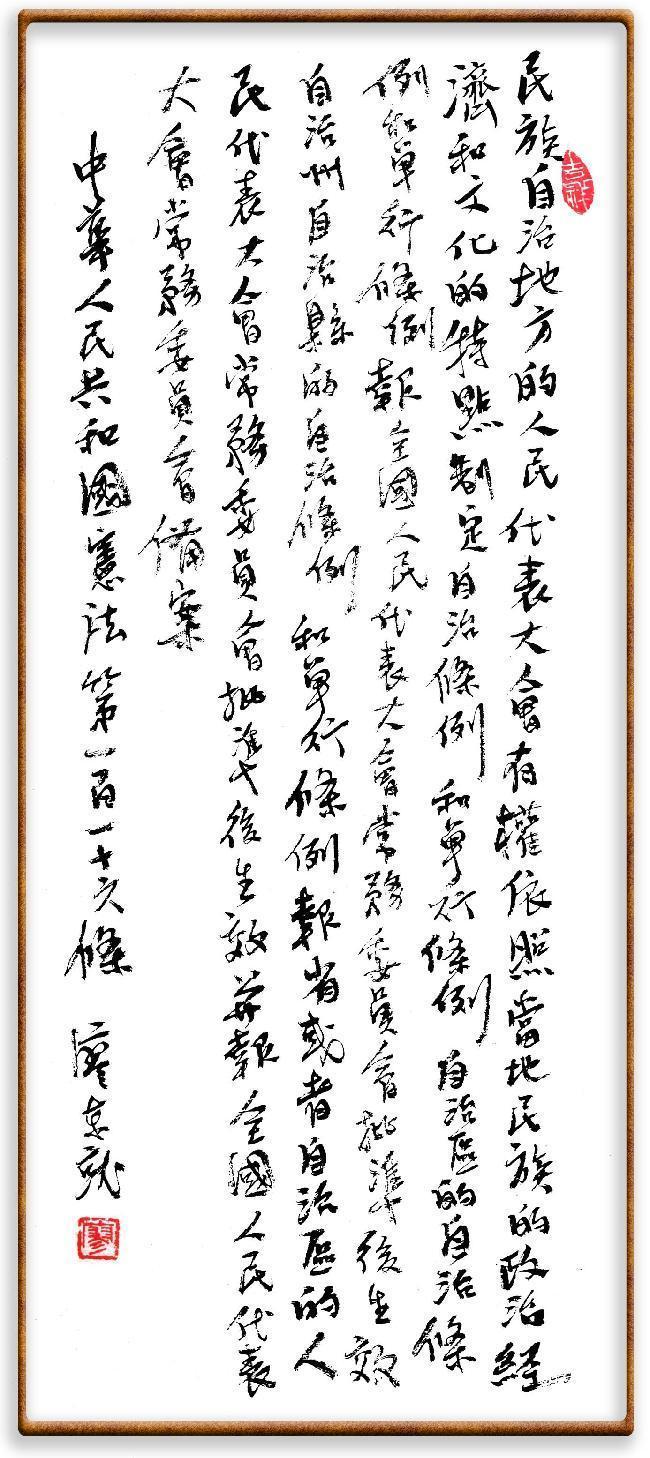 民族自治地方的人民代表大會有權依照當地民族的政治經
濟和文化的特點制定自治條例和單行條例自治區的自治條
例和單行條例報全國人民代表大會常務委員會批準後生效
自治州自治縣的自治條例和單行條例報省或者自治區的人
民代表大會常務委員會批準後生效并報全國人民代表
大會常務委員會備案
中華人民共和國憲法第一百一十六條 廖
廖